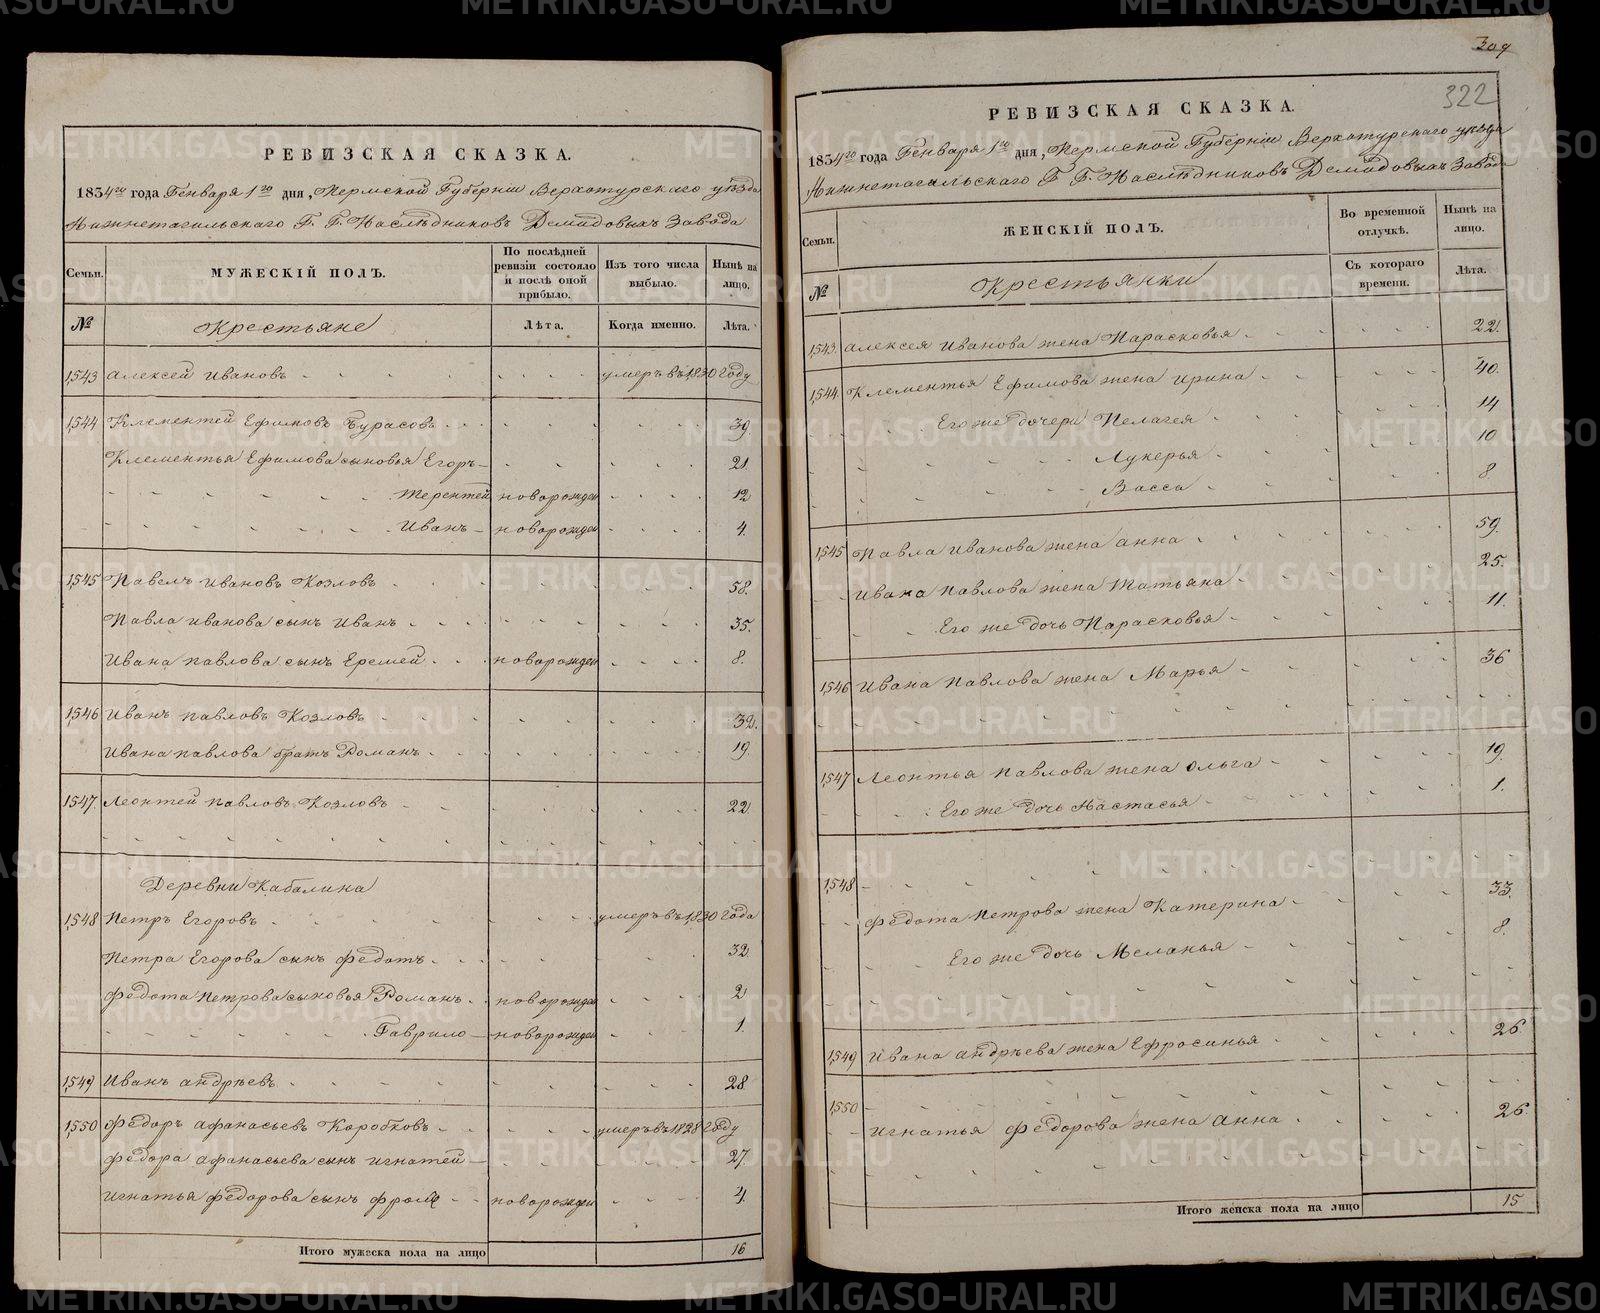 РЕВИЗСКАЯ СКАЗКА.
1834го года Генваря 1го дня, Пермской Губернiи Верхотурскаго уѣзда
Нижнетагильскаго Г. Г. Наслѣдниковъ Демидовыхъ Завода
Семьи. МУЖЕСКIЙ ПОЛЪ. По послѣдней ревизiи состояло и послѣ оной прибыло. Изъ того числа выбыло. Нынѣ на лицо.
№ Крестьяне Лѣта. Когда именно. Лѣта.
1,543 Алексей Ивановъ умеръ въ 1,830 году
1,544 Клементей Ефимовъ Бурасовъ 39
Клементья Ефимова сыновья Егоръ 21
Терентей новорожден 12
Иванъ новорожден 4.
1,545 Павелъ Ивановъ Козловъ 58.
Павла Иванова сынъ Иванъ 35.
Ивана Павлова сынъ Еремей новорожден 8.
1,546 Иванъ Павловъ Козловъ 32.
Ивана Павлова братъ Романъ 19.
1,547. Леонтей Павловъ Козловъ 22
Деревни Кабалина
1,548 Петръ Егоровъ умеръ въ 1,830 года
Петра Егорова сынъ Федотъ 32
Федота Петрова сыновья Романъ новорожден 2
Гаврило новорожден 1.
1,549 Иванъ Андрѣевъ 28
1,550 Федоръ Афанасьевъ Коробковъ умеръ въ 1828 году
Федора Афанасьева сынъ Игнатей 27
Игнатья Федорова сынъ Фролъ новорожден 4
Итого мужеска пола на лицо 16
309
322
РЕВИЗСКАЯ СКАЗКА.
1834го года Генваря 1го дня, Пермской Губернiи Верхотурскаго уѣзда
Нижнетагильскаго Г. Г. Наслѣдниковъ Демидовыхъ Завода
Семьи. ЖЕНСКIЙ ПОЛЪ. Во временной отлучкѣ. Нынѣ на лицо.
№ Крестьянки Съ котораго времени. Лѣта.
1,543. Алексея Иванова жена Парасковья 22
1,544. Клементья Ефимова жена Ирина 40.
Его же дочери Пелагея 14
Лукерья 10
Васса 8
1,545 Павла Иванова жена Анна 59.
Ивана Павлова жена Татьяна 25.
Его же дочь Парасковья 11.
1,546 Ивана Павлова жена Марья 36
1,547 Леонтья Павлова жена Ольга 19.
Его же дочь Настасья 1.
1,548
Федота Петрова жена Катерина 33.
Его же дочь Меланья 8.
1,549 Ивана Андрѣева жена Ефросинья 26
1,550
Игнатья Федорова жена Анна 26.
Итого женска пола на лицо 15
METRIKI.GASO-URAL.RU